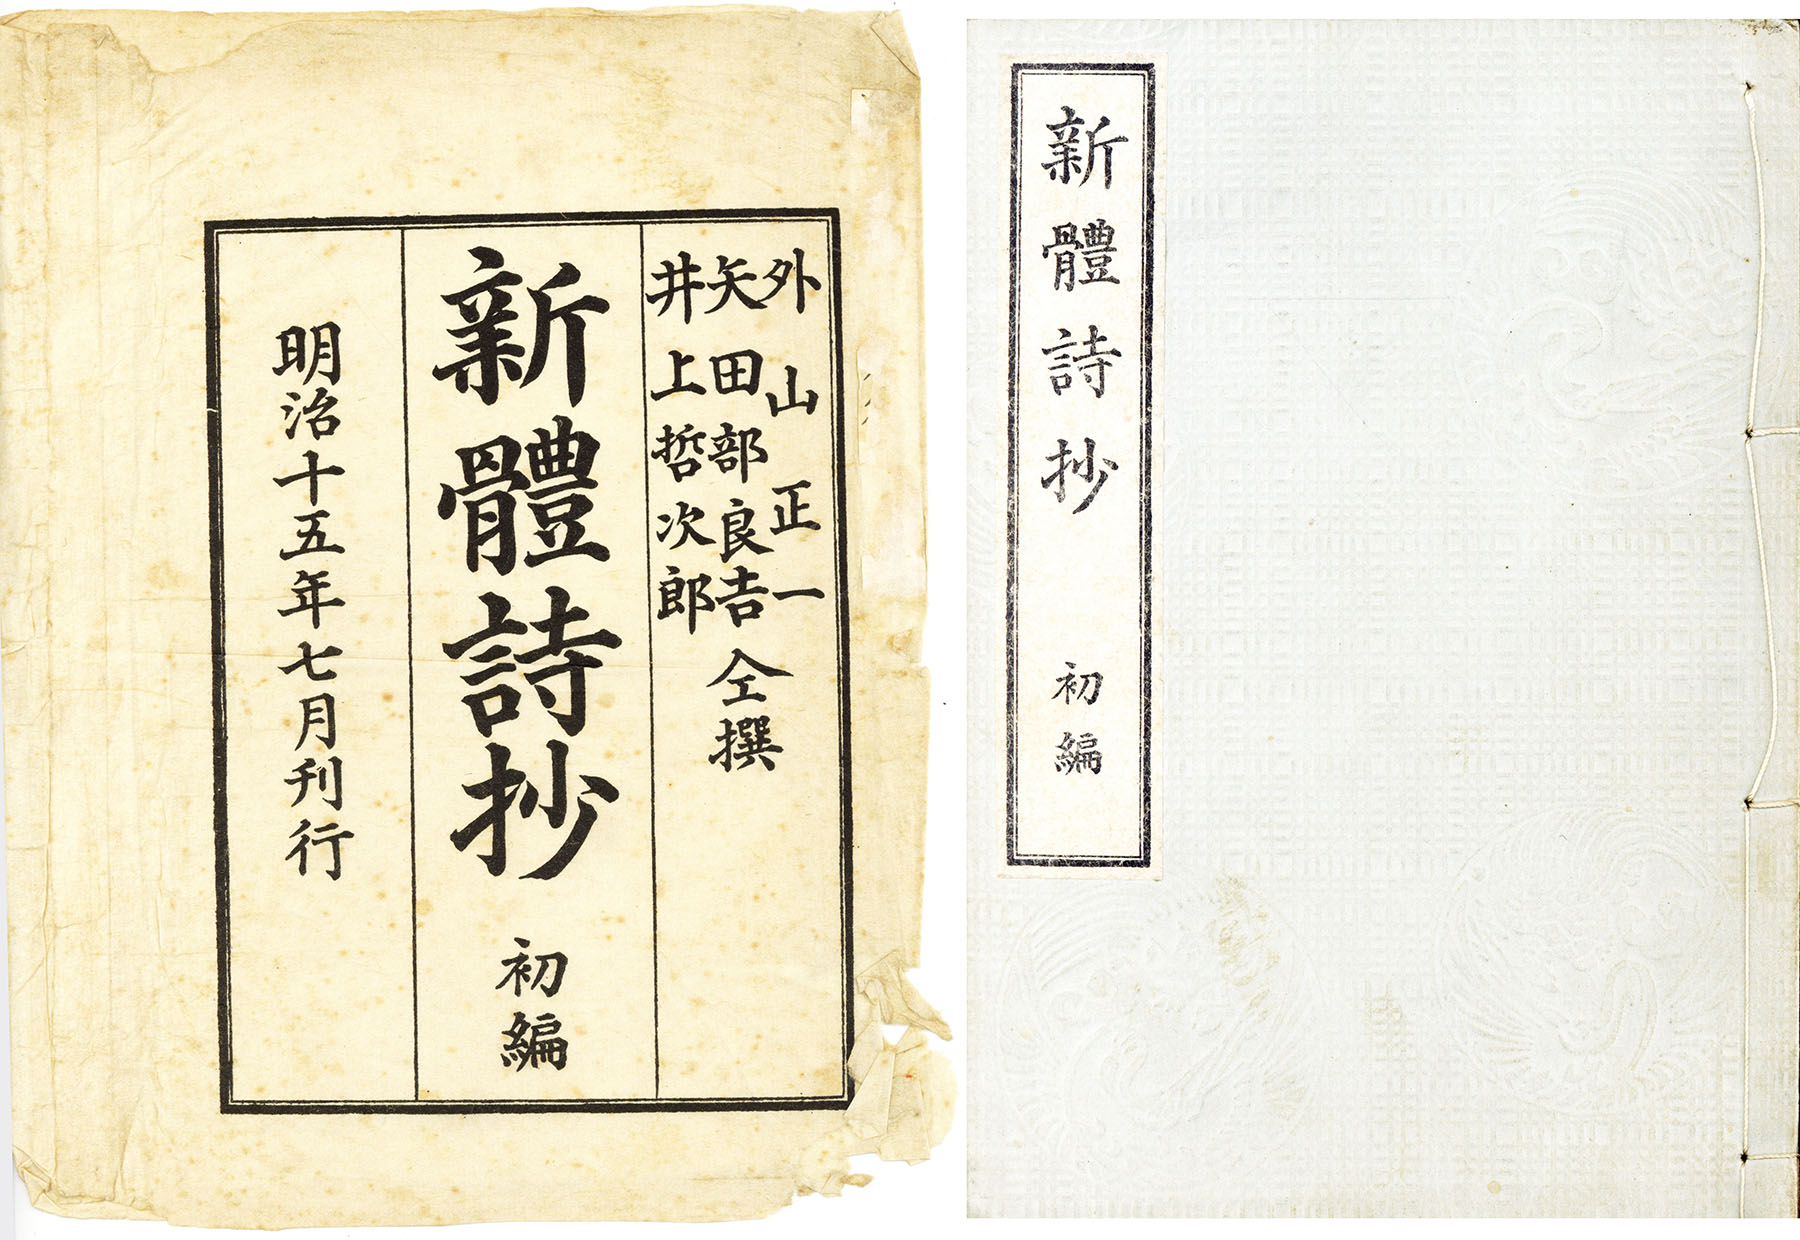 外山正一
矢田部良吉
井上哲次郎
仝撰
新體詩抄 初編
明治十五年七月刊行
新體詩抄 初編